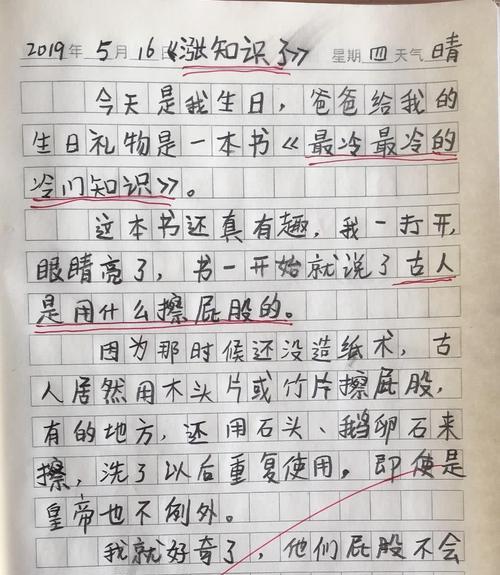 2019年5月16日《涨知识了》星期四天气晴
今天是我生日，爸爸给我的
生日礼物是一本书《最冷最冷的
冷门知识》。
这本书还真有趣，我一打开，
眼睛亮了，书一开始就说了古人
是用什么擦屁股的。
因为那时候还没造纸术，古
人居然用木头片或竹片擦屁股，
有的地方，还用石头、鹅卵石来
擦，洗了以后重复使用。即使是
皇帝也不例外。
我就好奇了，他们屁股不会